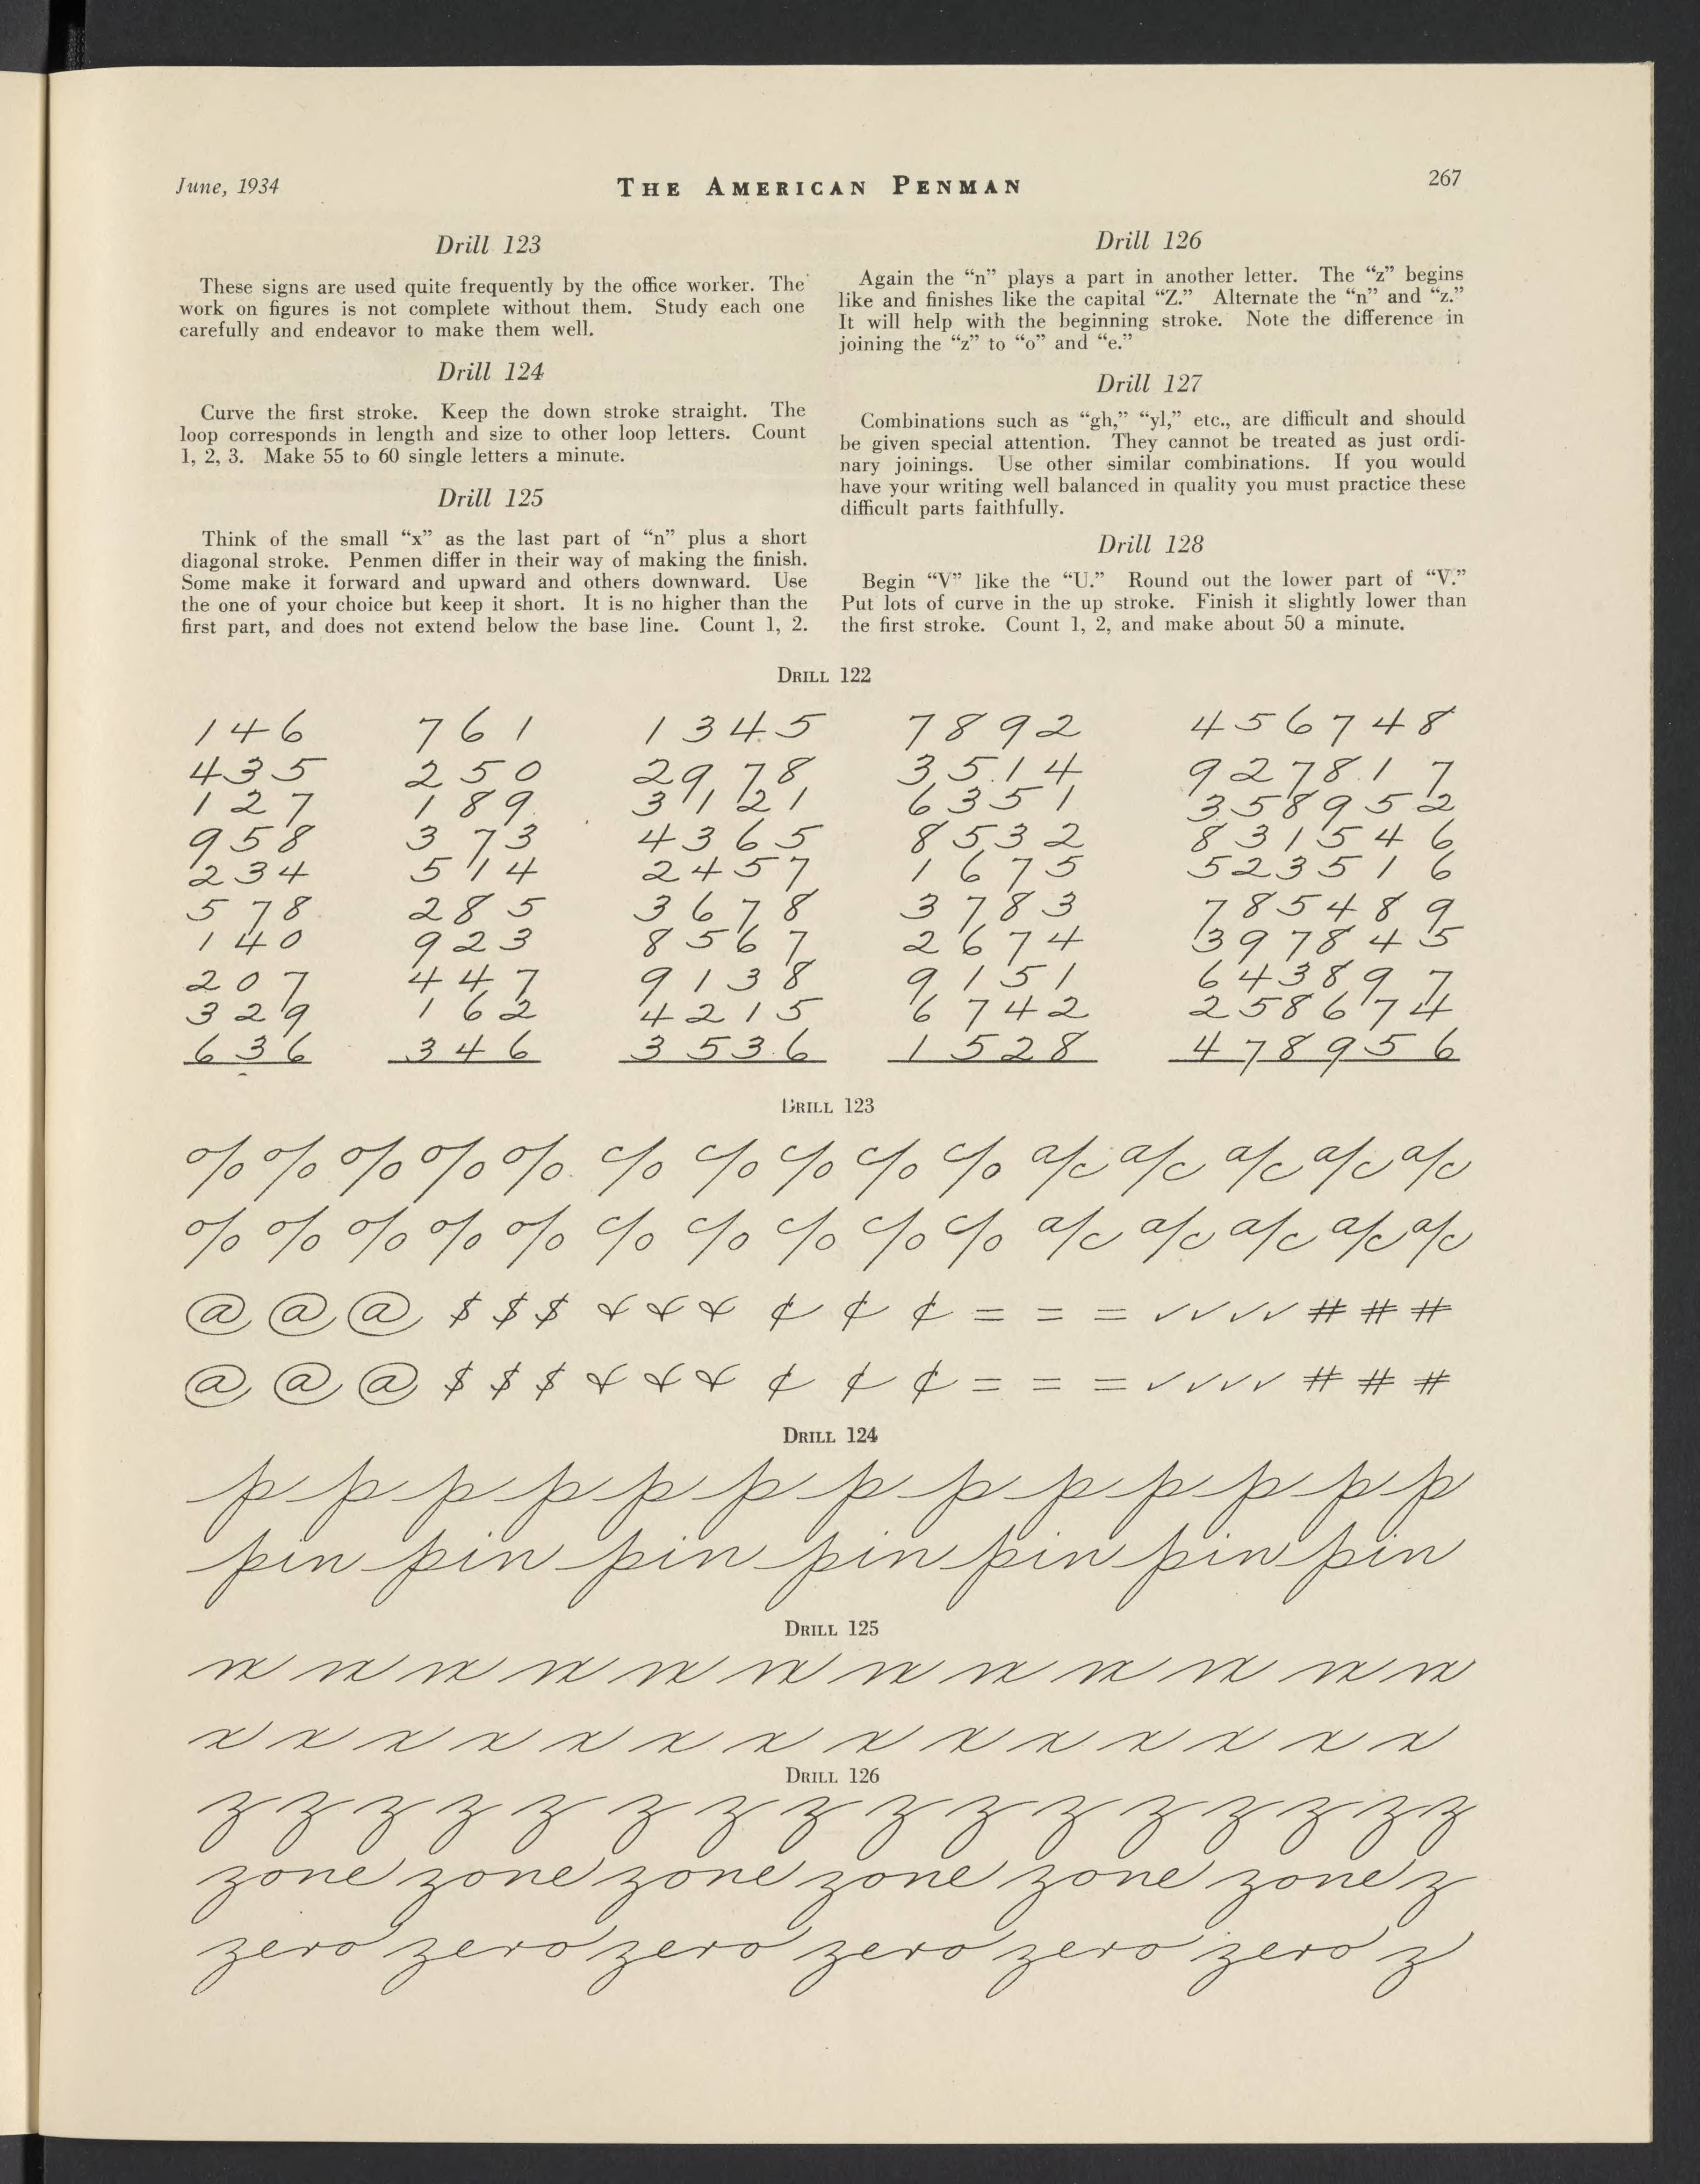 June, 1934
THE AMERICAN PENMAN
267
Drill 123
These signs are used quite frequently by the office worker. The
work on figures is not complete without them. Study each one
carefully and endeavor to make them well.
Drill 124
Curve the first stroke. Keep the down stroke straight. The
loop corresponds in length and size to other loop letters. Count
1, 2, 3. Make 55 to 60 single letters a minute.
Drill 125
Think of the small “x” as the last part of “n” plus a short
diagonal stroke. Penmen differ in their way of making the finish.
Some make it forward and upward and others downward. Use
the one of your choice but keep it short. It is no higher than the
first part, and does not extend below the base line. Count 1, 2.
Drill 126
Again the “n” plays a part in another letter. The “z” begins
like and finishes like the capital “Z.” Alternate the “n” and “z.”
It will help with the beginning stroke. Note the difference in
joining the “z” to “o” and “e.”
Drill 127
Combinations such as “gh,” “yl,” etc., are difficult and should
be given special attention. They cannot be treated as just ordi-
nary joinings. Use other similar combinations. If you would
have your writing well balanced in quality you must practice these
difficult parts faithfully.
Drill 128
Begin “V” like the “U.” Round out the lower part of “V.”
Put lots of curve in the up stroke. Finish it slightly lower than
the first stroke. Count 1, 2, and make about 50 a minute.
DRILL 122
146 761 1345 7892 456748
435 250 2978 3514 927817
127 189 3121 6351 358952
958 373 4365 8532 831546
234 514 2457 1675 523516
578 285 3678 3783 785489
140 923 8567 2674 397845
207 447 9138 9151 643897
329 162 4215 6742 258674
636 346 3536 1528 478956
DRILL 123
% % % % % c/o c/o c/o c/o c/o a/c a/c a/c a/c a/c
% % % % % c/o c/o c/o c/o c/o a/c a/c a/c a/c a/c
@ @ @ $ $ $ & & & ¢ ¢ ¢ = = = ✓ ✓ ✓ ✓ # # #
@ @ @ $ $ $ & & & ¢ ¢ ¢ = = = ✓ ✓ ✓ ✓ # # #
DRILL 124
p p p p p p p p p p p p p
pin pin pin pin pin pin pin
DRILL 125
nx nx nx nx nx nx nx nx nx nx nx nx
x x x x x x x x x x x x x x
DRILL 126
z z z z z z z z z z z z z z z
zone zone zone zone zone zone z
zero zero zero zero zero zero z